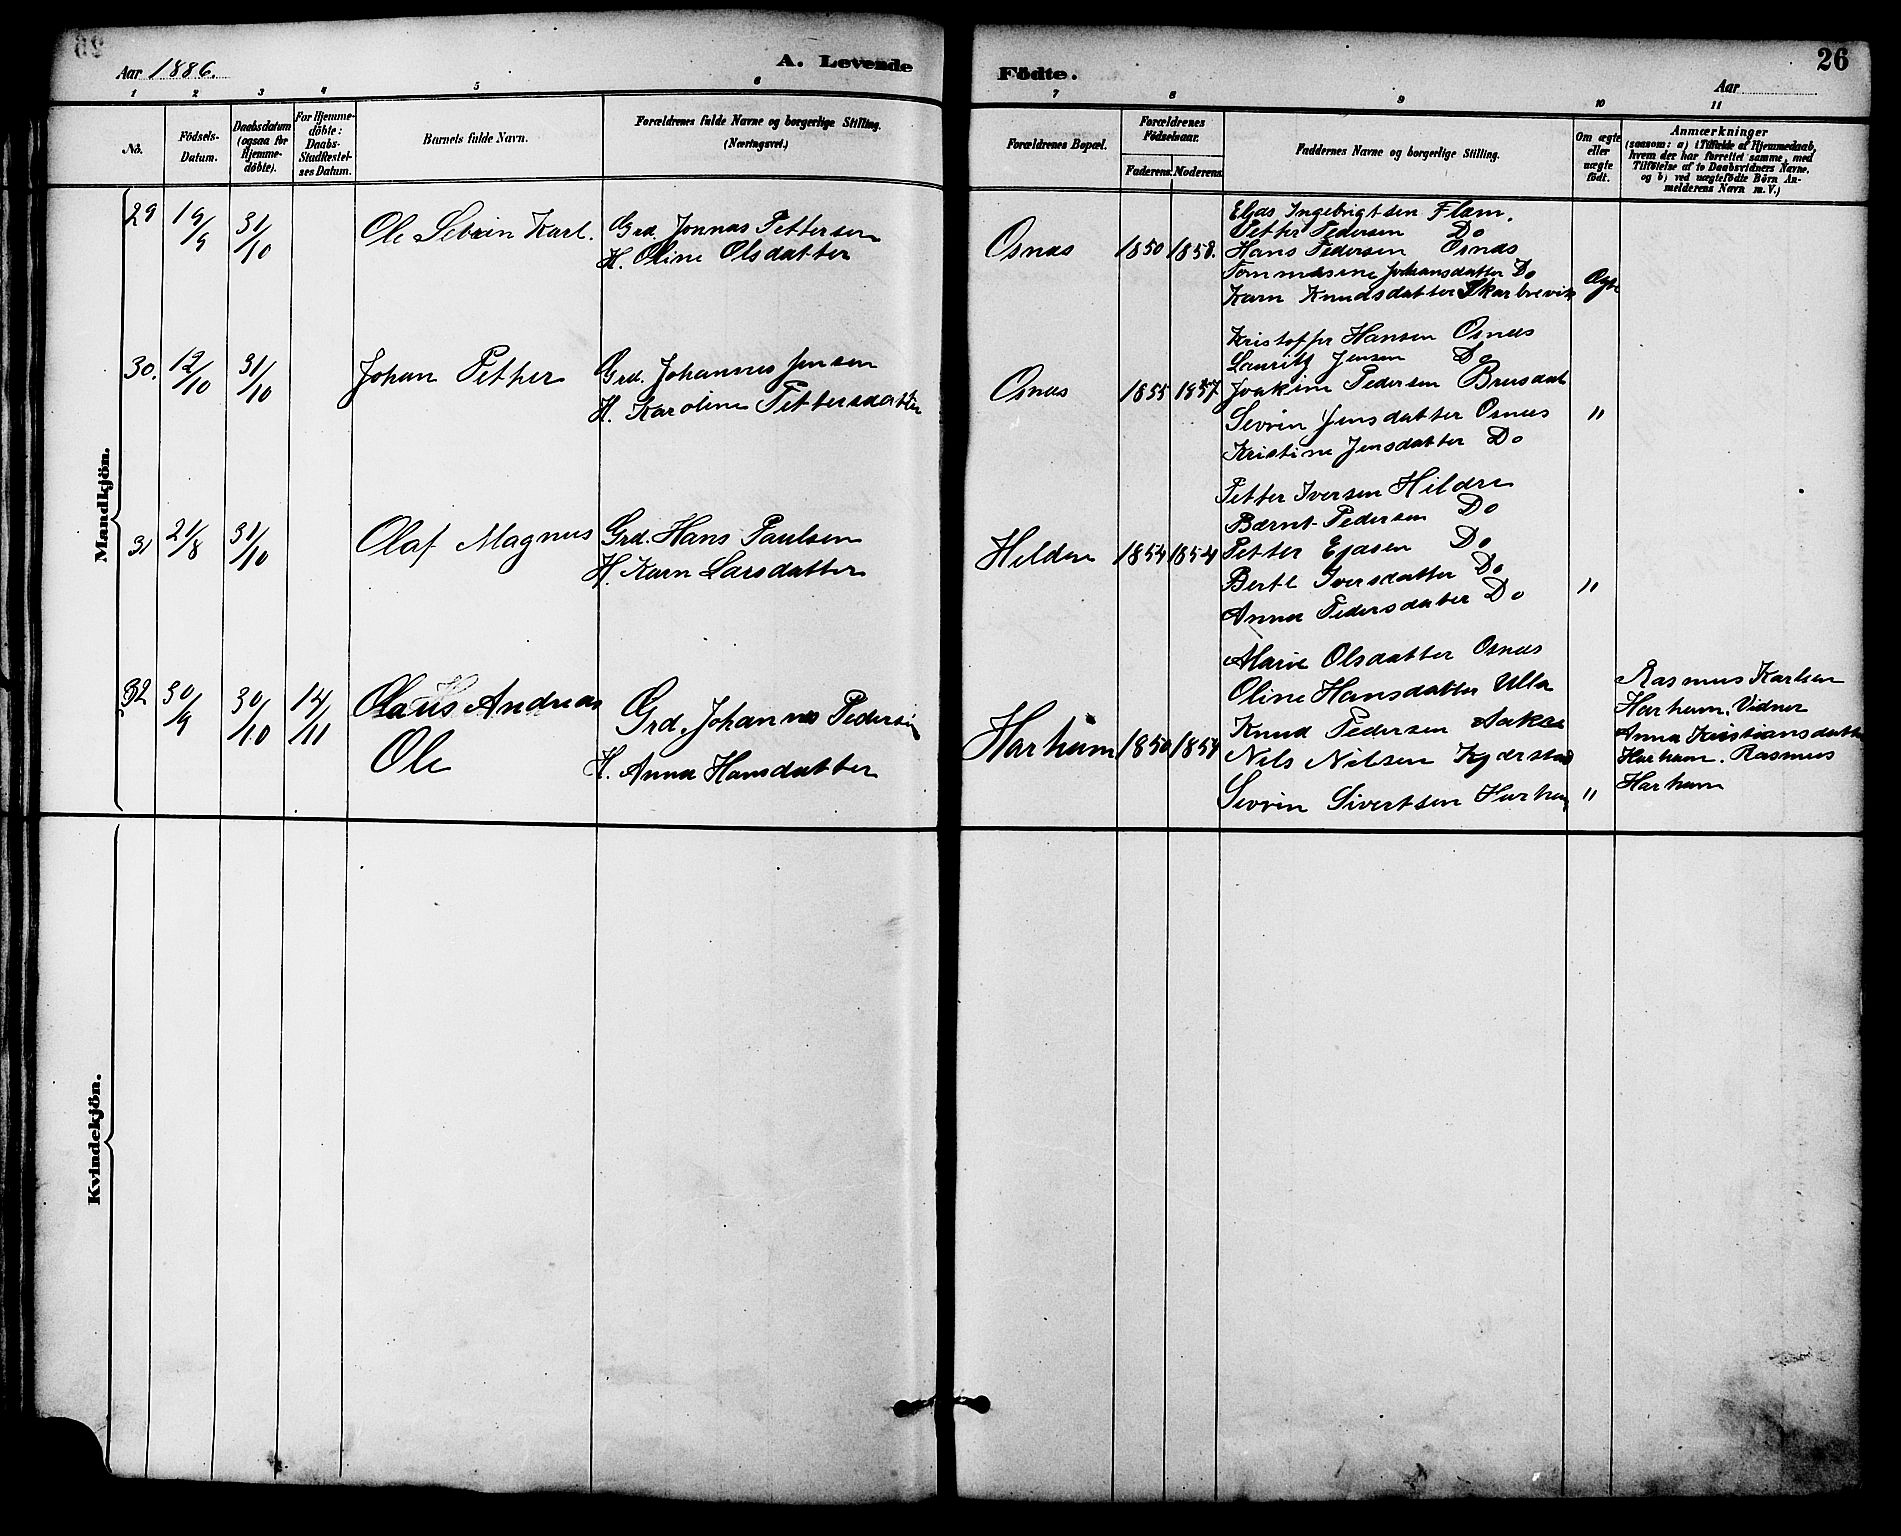 Aar 1886.
A. Levende
Födte.
Aar
26
1 2 3 4 5 6 7 8 9 10 11
No.
Födsels-
Datum.
Daabsdatum
(ogsaa for
Hjemme-
döbte).
For Hjemme-
döbte:
Daabs-
Stadfæstel-
ses Datum.
Barnets fulde Navn.
Forældrenes fulde Navne og borgerlige Stilling.
(Næringsvei.)
Forældrenes Bopæl.
Forældrenes
Födselsaar.
Faderens. Moderens.
Faddernes Navne og borgerlige Stilling.
Om ægte
eller
uægte
födt.
Anmærkninger
(saasom: a) i Tilfælde af Hjemmedaab,
hvem der har forrettet samme, med
Tilföielse af to Daabsvidners Navne,
og b) ved uægtefödte Börn An-
melderens Navn m. V.)
Mandkjön.
29 19/9 31/10
Ole Sevrin Karl.
Grd. Jonnas Pettersen
H. Oline Olsdatter
Osnas 1850 1858.
Elias Ingebrigtsen Flem.
Petter Pedersen Do
Hans Pedersen Osnas
Tommasine Johansdatter Do
Karn Knudsdatter Skarbrevik
Ægte
30. 12/10 31/10
Johan Petter
Grd. Johannes Jensen
H. Karoline Pettersdatter
Osnas 1855 1857
Kristoffer Hansen Osnas
Lauritz Jensen Do
Joakim Pedersen Brusdal
Sevrin Jensdatter Osnes "
Kristine Jensdatter Do
31 21/8 31/10
Olaf Magnus
Grd. Hans Paulsen
H. Karn Larsdatter
Hildre 1854 1854
Petter Iversen Hildre
Bærnt Pedersen Do
Petter Ejasen Do
Berte Iversdatter Do
Anna Pedersdatter Do "
32 30/9 30/10 14/11
Olaus Andreas
Ole
Grd. Johannes Pedersen
H. Anna Hansdatter
Harham 1850 1854
Marie Olsdatter Osnes
Oline Hansdatter Ulla
Knud Pedersen Aakre
Nils Nilsen Kjerstad
Sevrin Sivertsen Harham "
Rasmus Karlsen
Harham. Vidner
Anna Kristiansdatter
Harham. Rasmus
Harham
Kvindekjön.